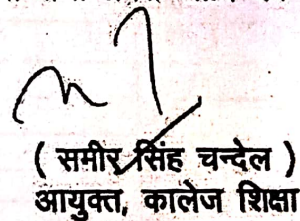 ( समीर सिंह चन्देल )
आयुक्त, कालेज शिक्षा